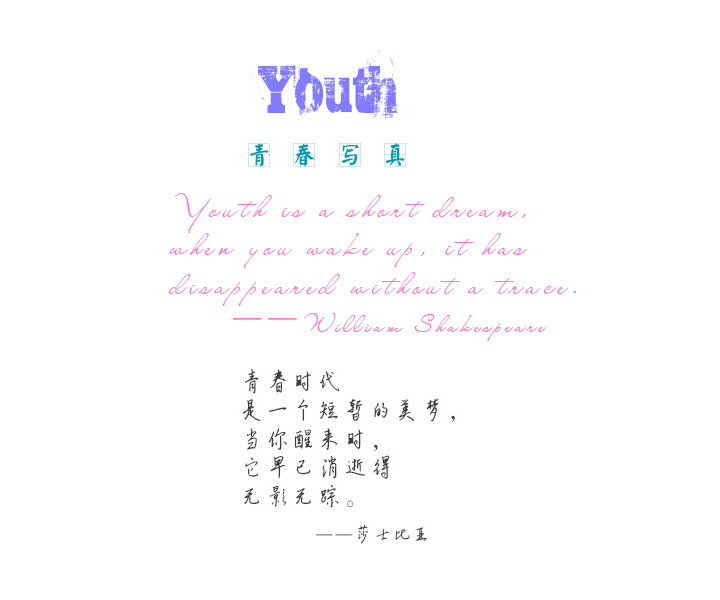 Youth
青春写真
Youth is a short dream,
when you wake up, it has
disappeared without a trace.
——William Shakespeare
青春时代
是一个短暂的美梦，
当你醒来时，
它早已消逝得
无影无踪。
——莎士比亚